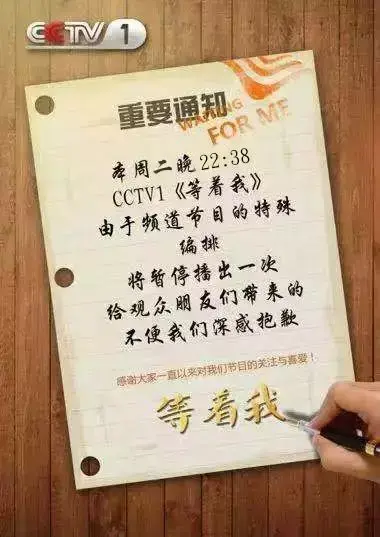 CCTV 1
重要通知
WAITING
FOR ME
本周二晚22:38
CCTV1《等着我》
由于频道节目的特殊
编排
将暂停播出一次
给观众朋友们带来的
不便我们深感抱歉
感谢大家一直以来对我们节目的关注与喜爱！
等着我